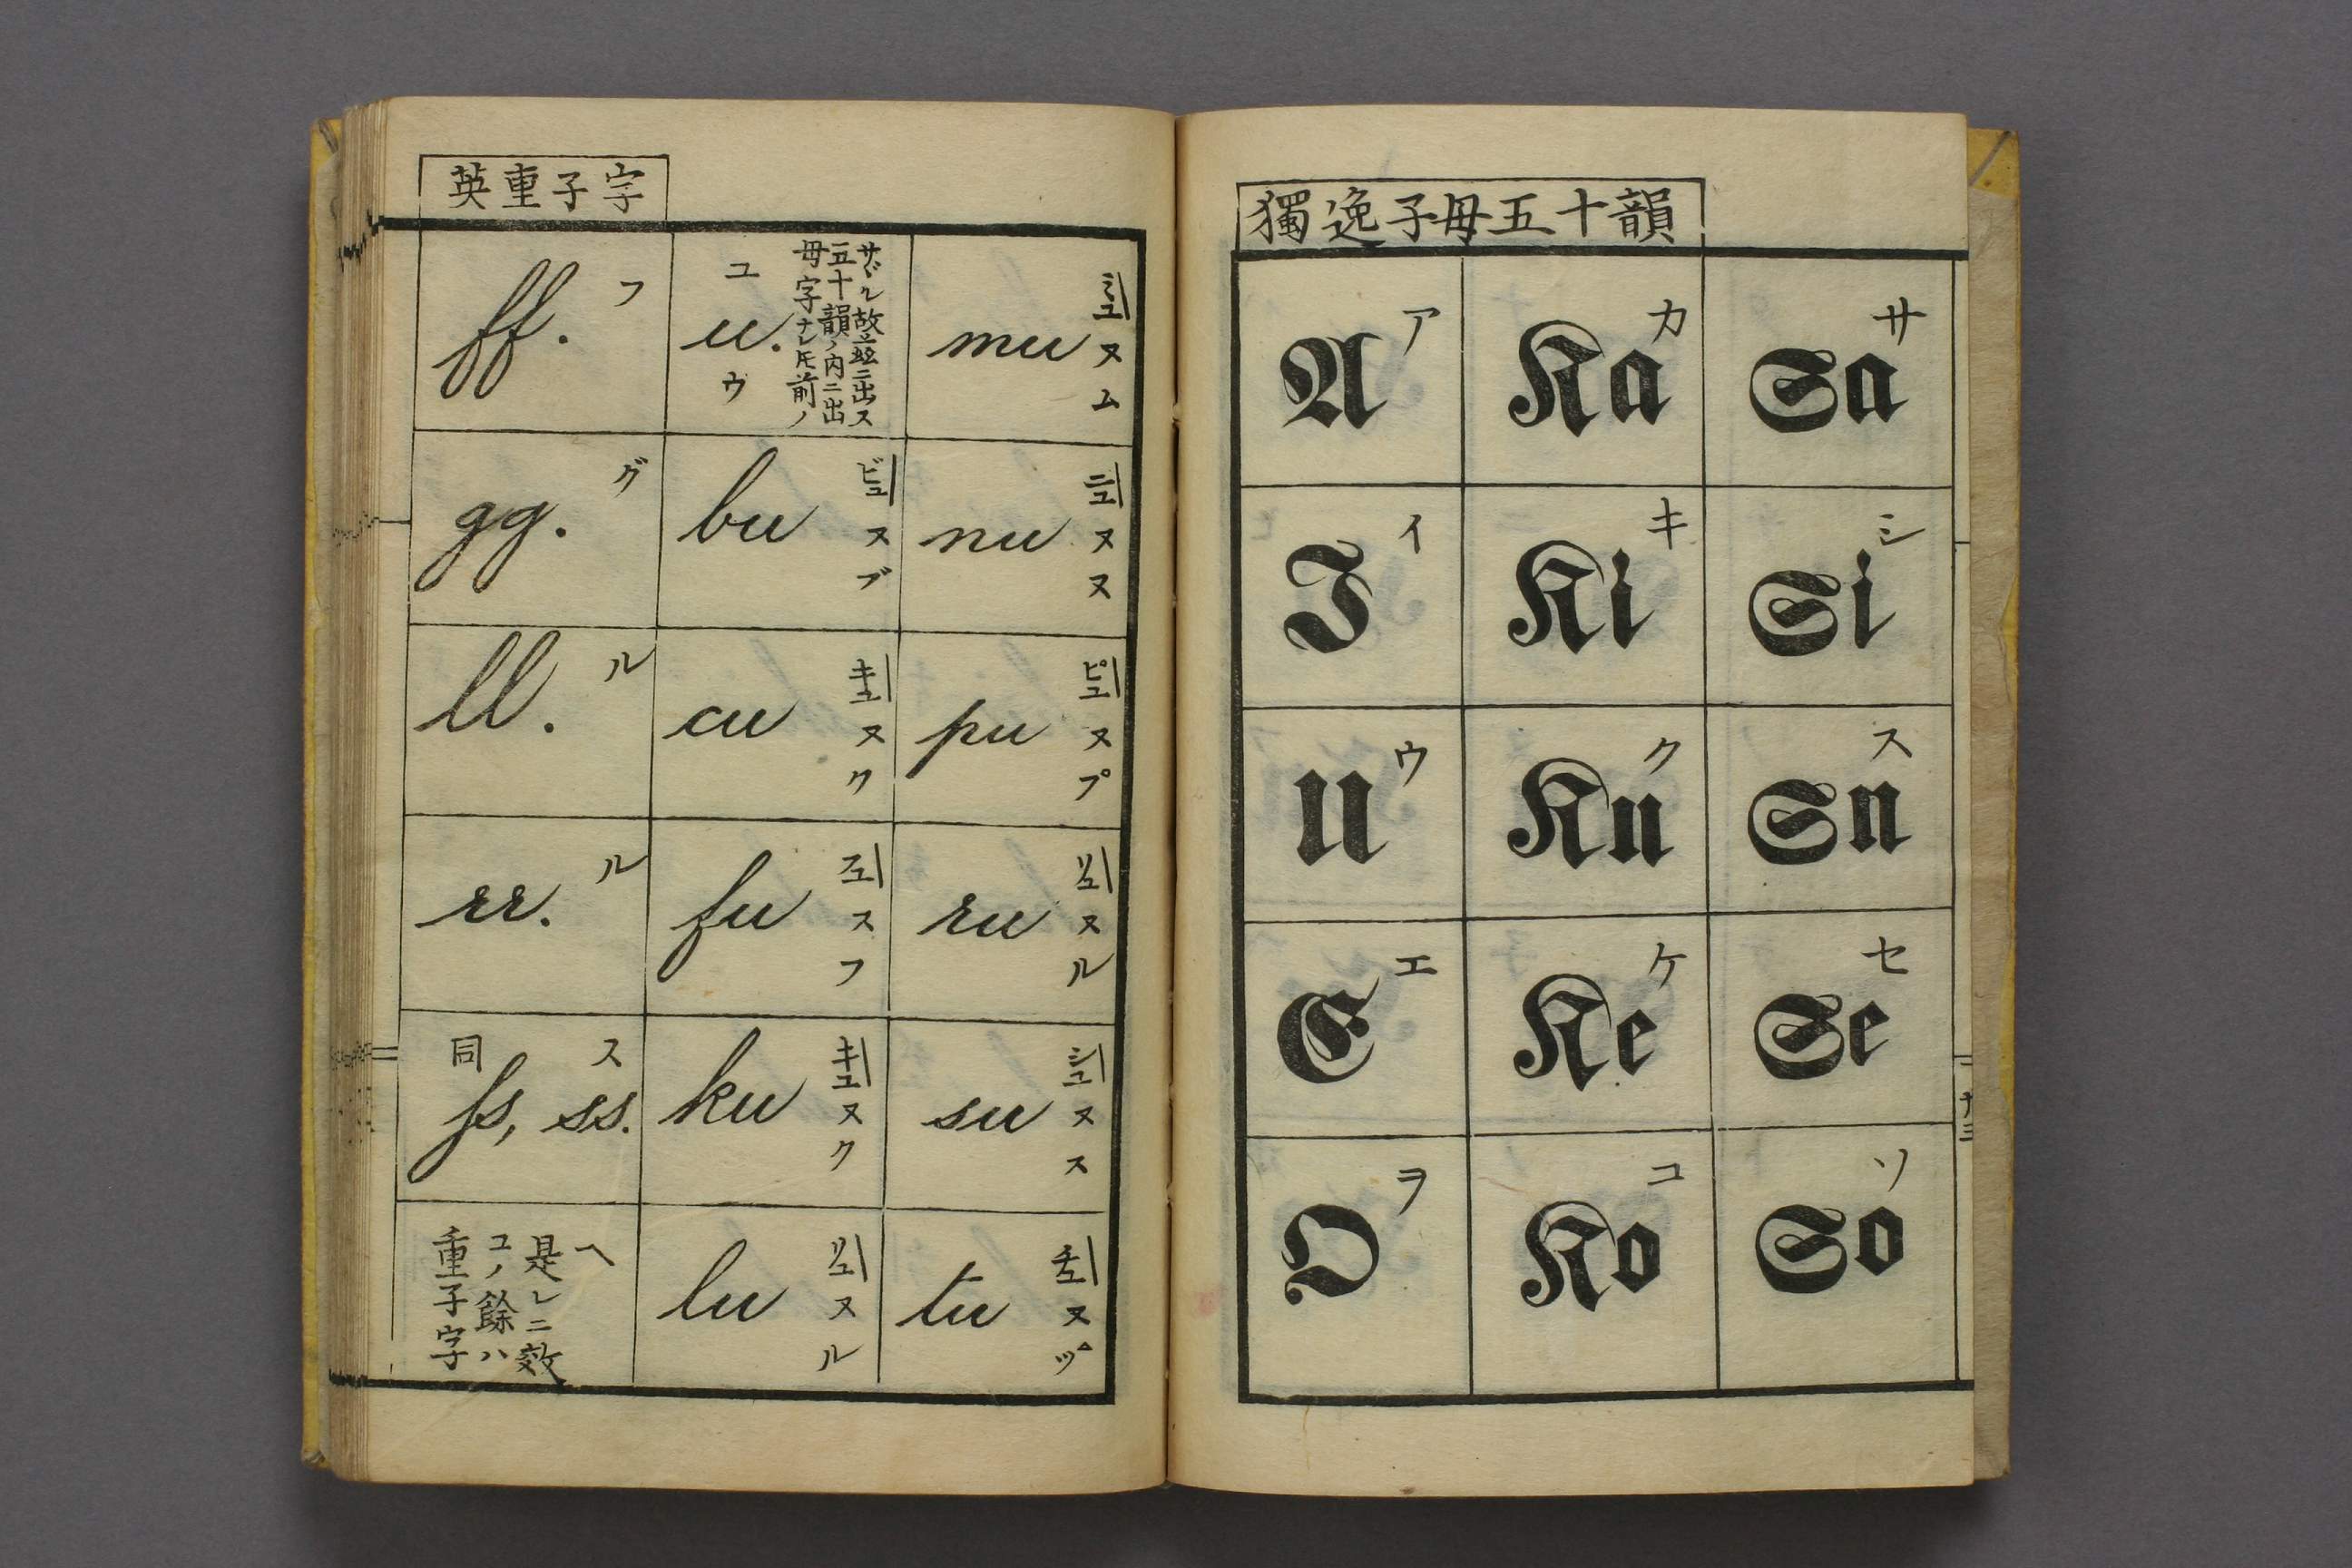 英重子字
ff. フ
ユ u. ウ
母字ナレ𪜈前ノ
五十韻ノ内ニ出
サヾル故ニ玆ニ出ス
mu ミュー ヌ ム
gg. グ
bu ビュー ヌ ブ
nu ニュー ヌ ヌ
ll. ル
cu キュー ヌ ク
pu ピュー ヌ プ
rr. ル
fu フュー ヌ フ
ru リュー ヌ ル
同 ス
ſs, ss.
ku キュー ヌ ク
su シュー ヌ ス
重子字
コノ餘ハ
是レニ效
ヘ
lu リュー ヌ ル
tu チュー ヌ ツ゚
獨逸子母五十韻
A ア
Ka カ
Sa サ
I イ
Ki キ
Si シ
U ウ
Ku ク
Su ス
E エ
Ke ケ
Se セ
O ヲ
Ko コ
So ソ